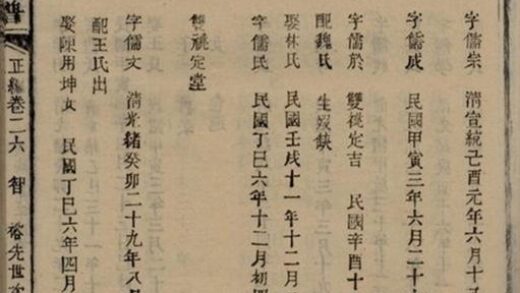 字儒宗 清宣統己酉元年六月十
字儒成 民國甲寅三年六月二十
字儒於 雙挑定吉 民國辛酉十
配魏氏 生歿缺
娶林氏 民國壬戌十一年十二月
字儒民 民國丁巳六年十二月初
雙祧定堂
字儒文 清光緒癸卯二十九年八月
配王氏出
娶陳用坤女 民國丁巳六年四月
正編卷二六 智 裕先世次